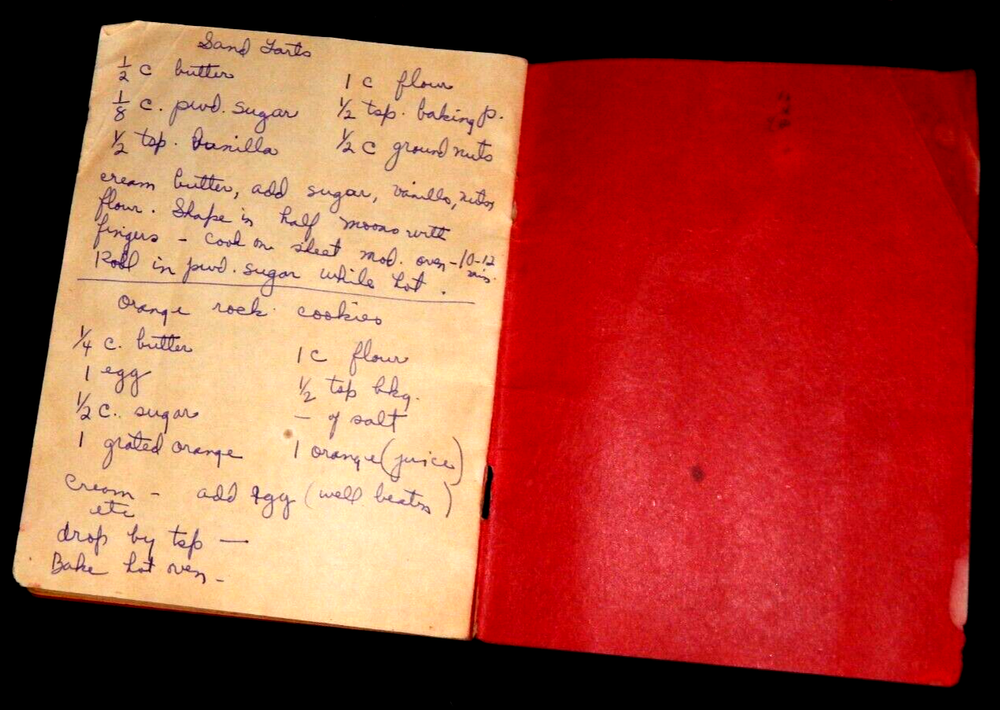 Sand Tarts
1/2 c butter 1 c flour
1/8 c. pwd. sugar 1/2 tsp. baking p.
1/2 tsp. Vanilla 1/2 c ground nuts
cream butter, add sugar, vanilla, nuts
flour. Shape in half moons with
fingers - cook on sheet mod. oven - 10-12 min.
Roll in pwd. sugar while hot.
Orange rock cookies
1/4 c. butter 1 c flour
1 egg 1/2 tsp bkg.
1/2 c. sugar — of salt
1 grated orange 1 orange (juice)
Cream - add egg (well beaten)
etc
drop by tsp —
Bake hot oven -